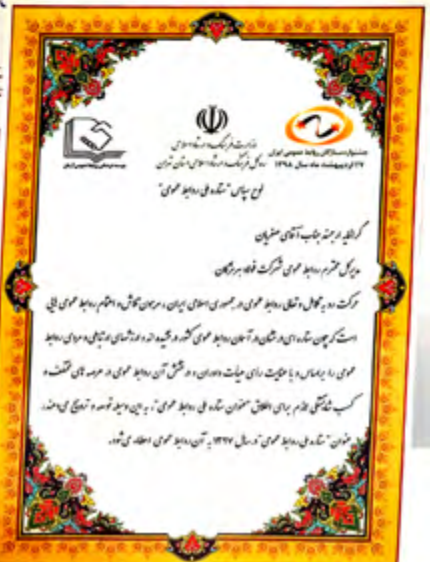 وزارت فرهنگ و ارشاد اسلامی
اداره کل فرهنگ و ارشاد اسلامی استان تهران
جشنواره ستارگان روابط عمومی ایران
۲۷ اردیبهشت ماه سال ۱۳۹۸
لوح سپاس "ستاره ملی روابط عمومی"
گرانمایه ارجمند جناب آقای صفریان
مدیرکل محترم روابط عمومی شرکت فولاد هرمزگان
حرکت رو به تکامل و تعالی روابط عمومی در جمهوری اسلامی ایران، مرهون تلاش و اهتمام روابط عمومی هایی
است که چون ستاره ای درخشان در آسمان روابط عمومی کشور درخشیده اند و ارزشهای ارتباطی و مردمی روابط
عمومی را براساس و با عنایت رای هیأت داوران و درخشش آن روابط عمومی در عرصه های مختلف و
کسب شایستگی لازم برای اطلاق "عنوان ستاره ملی روابط عمومی"، به این وسیله توسعه و ترویج می دهند.
عنوان "ستاره ملی روابط عمومی" در سال ۱۳۹۷ به آن روابط عمومی اعطاء می شود.